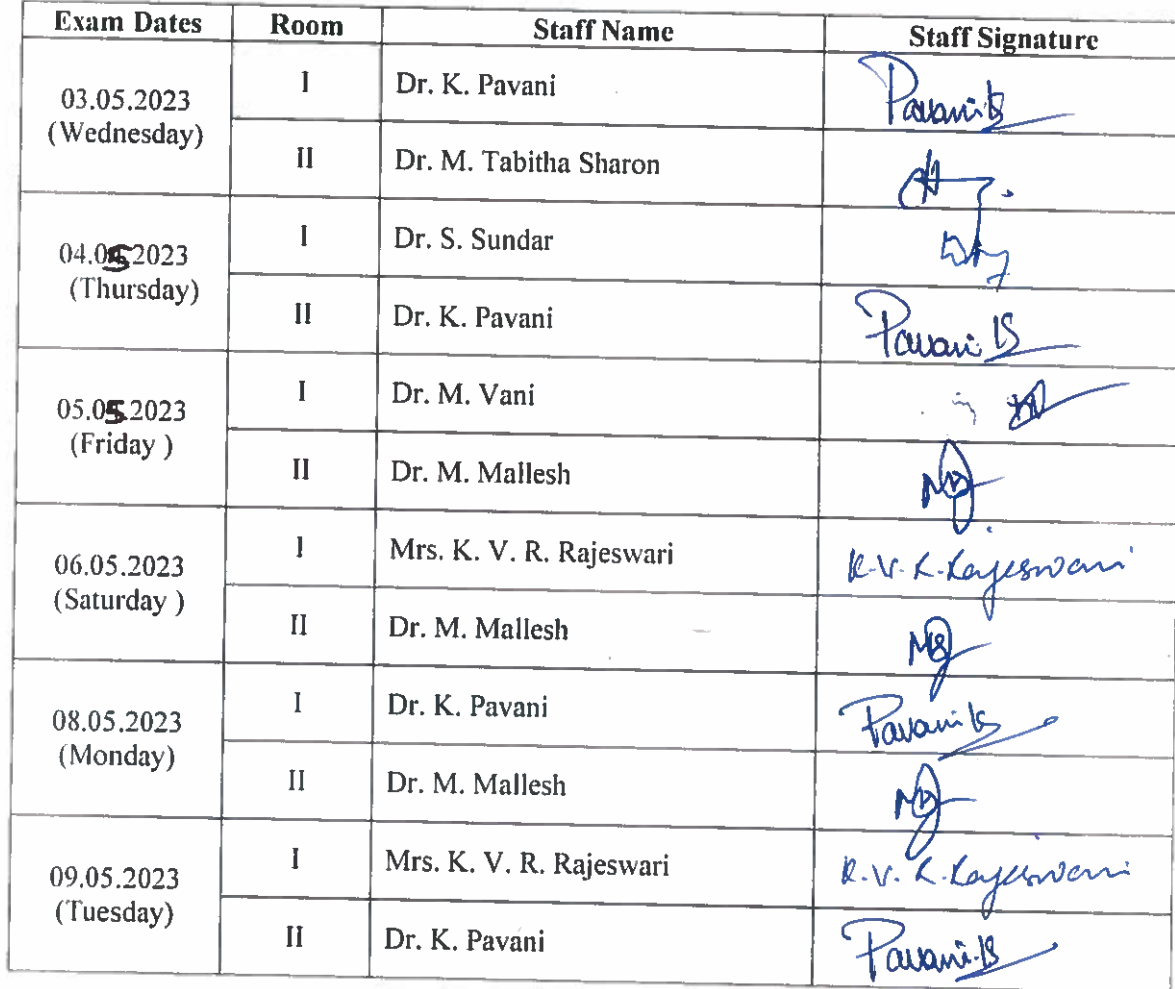 Exam Dates Room Staff Name Staff Signature
03.05.2023
(Wednesday)
I Dr. K. Pavani Pavani K
II Dr. M. Tabitha Sharon
04.05.2023
(Thursday)
I Dr. S. Sundar
II Dr. K. Pavani Pavani K
05.05.2023
(Friday )
I Dr. M. Vani
II Dr. M. Mallesh
06.05.2023
(Saturday )
I Mrs. K. V. R. Rajeswari K.V.R.Rajeswari
II Dr. M. Mallesh
08.05.2023
(Monday)
I Dr. K. Pavani Pavani K
II Dr. M. Mallesh
09.05.2023
(Tuesday)
I Mrs. K. V. R. Rajeswari K.V.R.Rajeswari
II Dr. K. Pavani Pavani.K